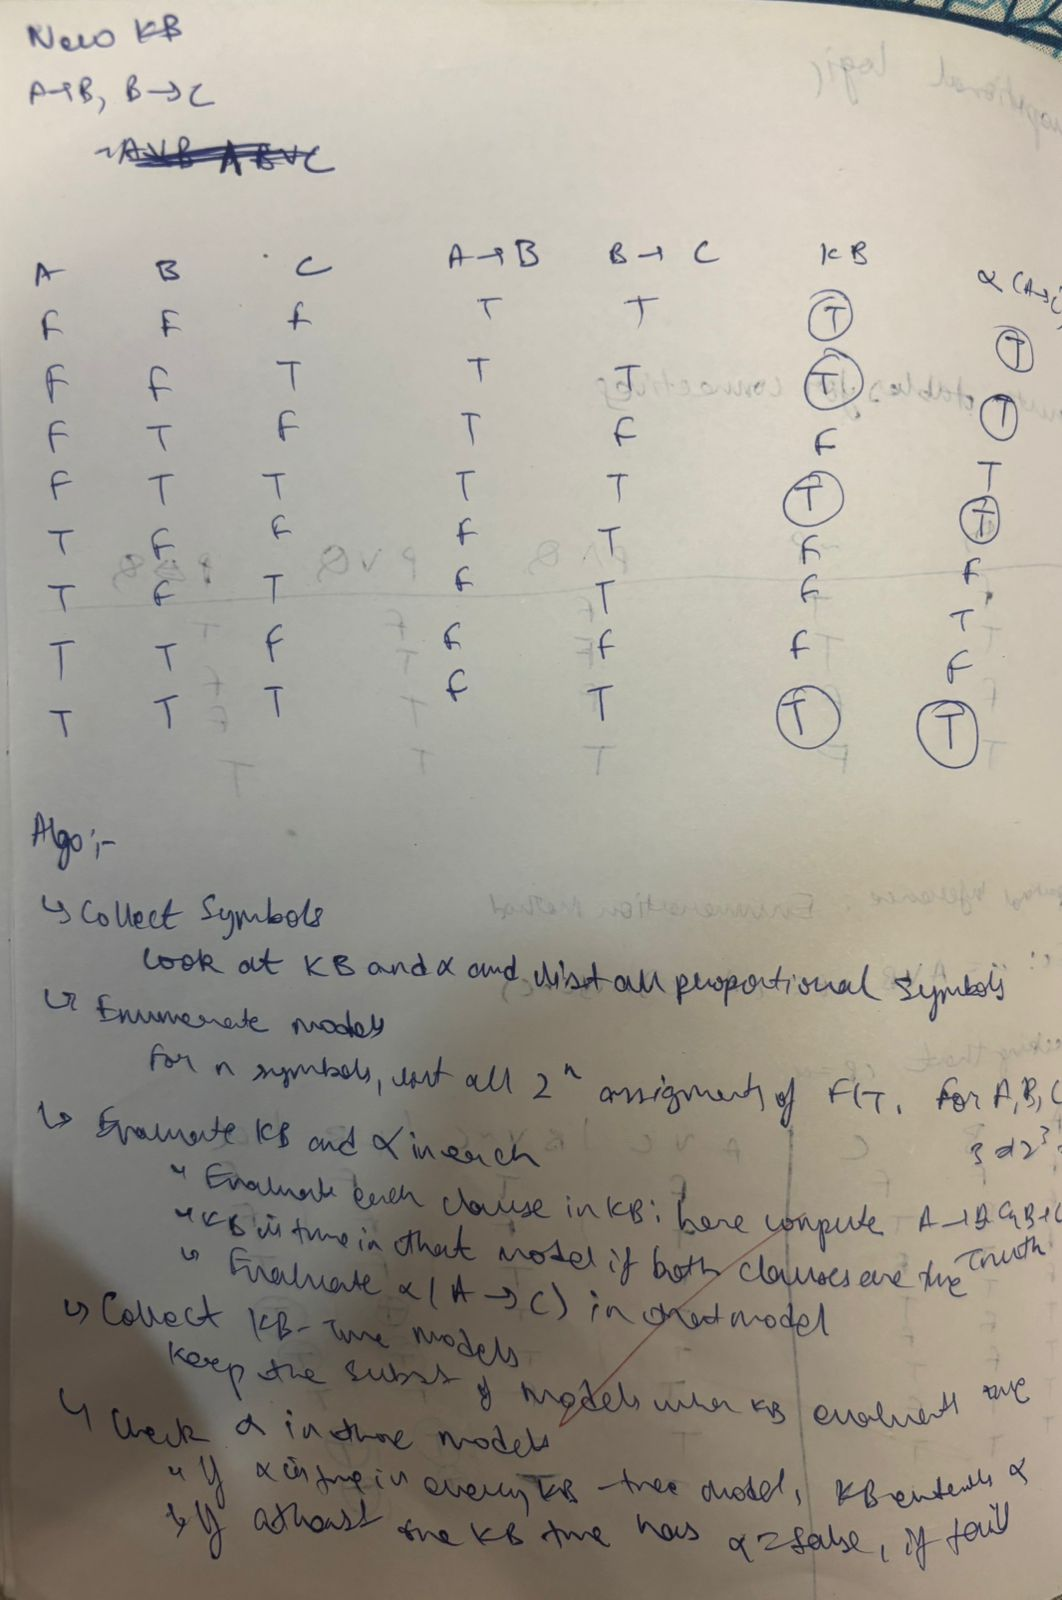 New KB
A→B, B→C
A B C A→B B→C KB α (A→C)
F F F T T T T
F F T T T T T
F T F T F F T
F T T T T T T
T F F F T F F
T F T F T F T
T T F F F F F
T T T F T T T
Algo:-
↳ Collect Symbols
look at KB and α and list all proportional symbols
↳ Enumerate models
for n symbols, list all 2ⁿ assigments of F/T. For A, B, C
↳ Evaluate KB and α in each
" Evaluate each clause in KB: here compute A→B
" KB is true in that model if both clauses are the Truth
↳ Evaluate α (A→C) in that model
↳ Collect KB-True models
Keep the subset of models when KB evaluates true
↳ Check α in those models
" If α is true in every KB-tree model, KB entails α
↳ If atleast one KB true has α = false, if fail